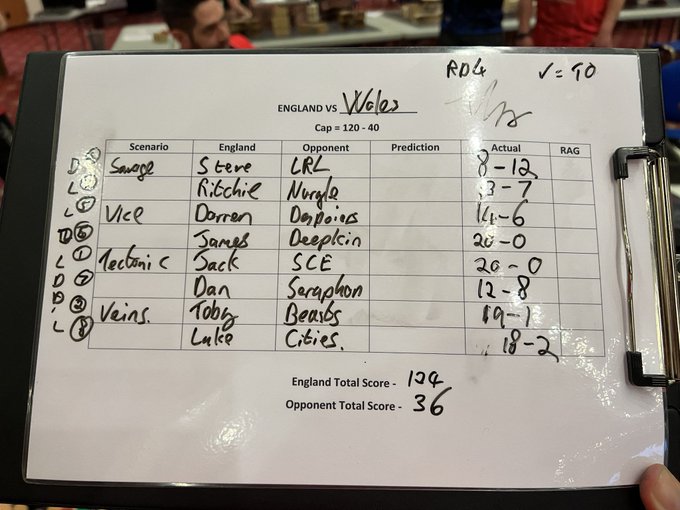 RD4 ✓= TO
ENGLAND VS Wales
Cap = 120 - 40
Scenario England Opponent Prediction Actual RAG
D Savage Steve LRL 8-12
L Ritchie Nurgle 13-7
L 5 Vice Darren Das 14-6
6 James Deepkin 20-0
L 1 Tectonic Jack SCE 20-0
D 7 Dan Seraphon 12-8
D Veins. Toby Beasts 19-1
L 8 Luke Cities. 18-2
England Total Score - 124
Opponent Total Score - 36